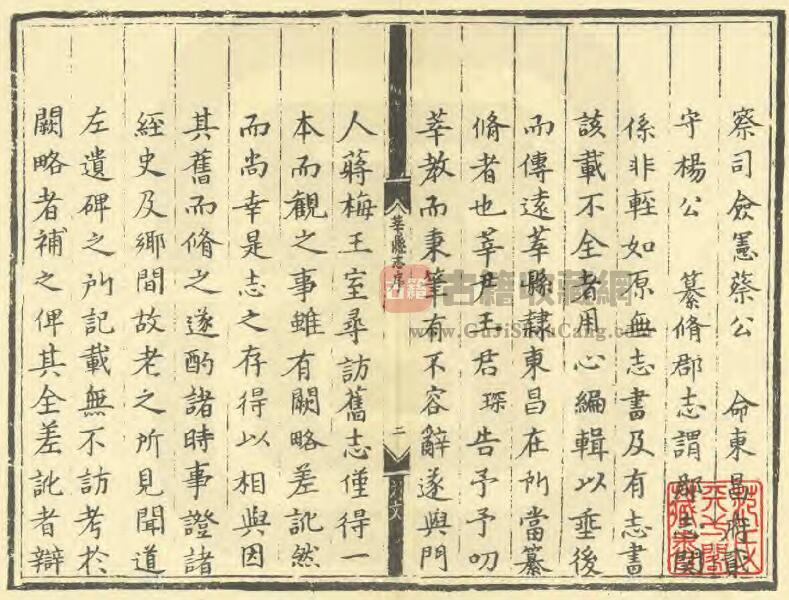 察司僉憲蔡公　命東昌府
守楊公　纂脩郡志謂郡
係非輕如原無志書及有志書
該載不全者用心編輯以垂後
而傳遠莘縣隸東昌在所當纂
脩者也莘尹王君琛告予予叨
莘教而秉筆有不容辭遂與門
莘縣志序
二
人蔣梅王室尋訪舊志僅得一
本而觀之事雖有闕略差訛然
而尚幸是志之存得以相與因
其舊而脩之遂酌諸時事證諸
經史及鄉閭故老之所見聞道
左遺碑之所記載無不訪考於
闕略者補之俾其全差訛者辯
古籍收藏網
www.GuJiShouCang.com